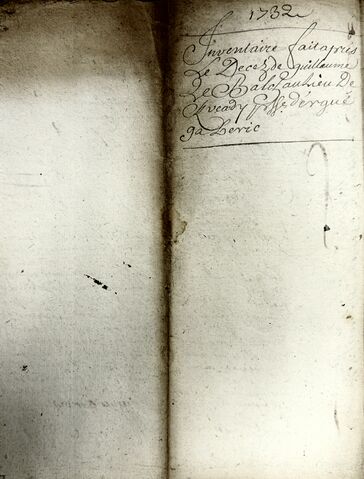 1732
Inventaire fait apres
Le Deces de guillaume
Le Balch au Lieu De
Kveady psse dergué
ga Beric